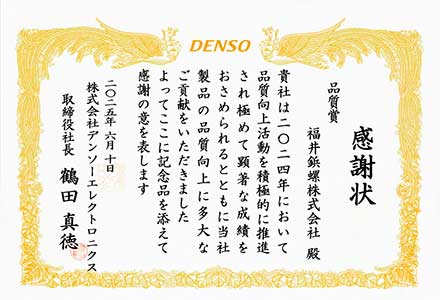 DENSO
感謝状
品質賞
福井鋲螺株式会社 殿
貴社は二〇二四年において
品質向上活動を積極的に推進
され極めて顕著な成績を
おさめられるとともに当社
製品の品質向上に多大な
ご貢献をいただきました
よってここに記念品を添えて
感謝の意を表します
二〇二五年 六月 十日
株式会社デンソーエレクトロニクス
取締役社長 鶴田 真徳